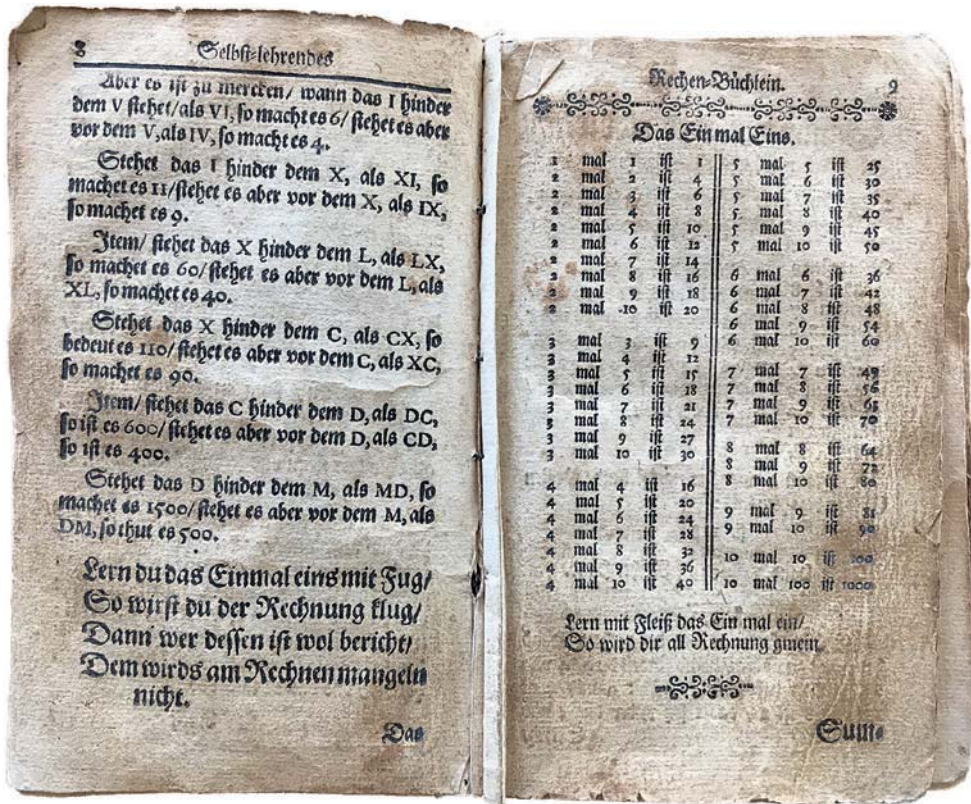 8 Selbst-lehrendes
Aber es ist zu mercken/ wann das I hinder
dem V stehet/als VI, so macht es 6/ stehet es aber
vor dem V, als IV, so macht es 4.
Stehet das I hinder dem X, als XI, so
machet es 11/stehet es aber vor dem X, als IX,
so machet es 9.
Item/ stehet das X hinder dem L, als LX,
so machet es 60/stehet es aber vor dem L, als
XL, so machet es 40.
Stehet das X hinder dem C, als CX, so
bedeut es 110/stehet es aber vor dem C, als XC,
so machet es 90.
Item/ stehet das C hinder dem D, als DC,
so ist es 600/stehet es aber vor dem D, als CD,
so ist es 400.
Stehet das D hinder dem M, als MD, so
machet es 1500/stehet es aber vor dem M, als
DM, so thut es 500.
Lern du das Einmal eins mit Fug/
So wirst du der Rechnung klug/
Dann wer dessen ist wol bericht/
Dem wirds am Rechnen mangeln
nicht.
Das
Rechen-Büchlein. 9
Das Ein mal Eins.
1 mal 1 ist 1
2 mal 2 ist 4
2 mal 3 ist 6
2 mal 4 ist 8
2 mal 5 ist 10
2 mal 6 ist 12
2 mal 7 ist 14
2 mal 8 ist 16
2 mal 9 ist 18
2 mal 10 ist 20
3 mal 3 ist 9
3 mal 4 ist 12
3 mal 5 ist 15
3 mal 6 ist 18
3 mal 7 ist 21
3 mal 8 ist 24
3 mal 9 ist 27
3 mal 10 ist 30
4 mal 4 ist 16
4 mal 5 ist 20
4 mal 6 ist 24
4 mal 7 ist 28
4 mal 8 ist 32
4 mal 9 ist 36
4 mal 10 ist 40
5 mal 5 ist 25
5 mal 6 ist 30
5 mal 7 ist 35
5 mal 8 ist 40
5 mal 9 ist 45
5 mal 10 ist 50
6 mal 6 ist 36
6 mal 7 ist 42
6 mal 8 ist 48
6 mal 9 ist 54
6 mal 10 ist 60
7 mal 7 ist 49
7 mal 8 ist 56
7 mal 9 ist 63
7 mal 10 ist 70
8 mal 8 ist 64
8 mal 9 ist 72
8 mal 10 ist 80
9 mal 9 ist 81
9 mal 10 ist 90
10 mal 10 ist 100
10 mal 100 ist 1000
Lern mit Fleiß das Ein mal ein/
So wird dir all Rechnung gmein
Sum-